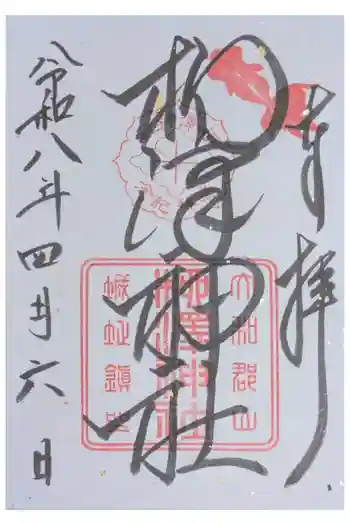 奉拝
柳澤神社
令和八年四月六日
大和郡山
柳澤神社
城址鎮座